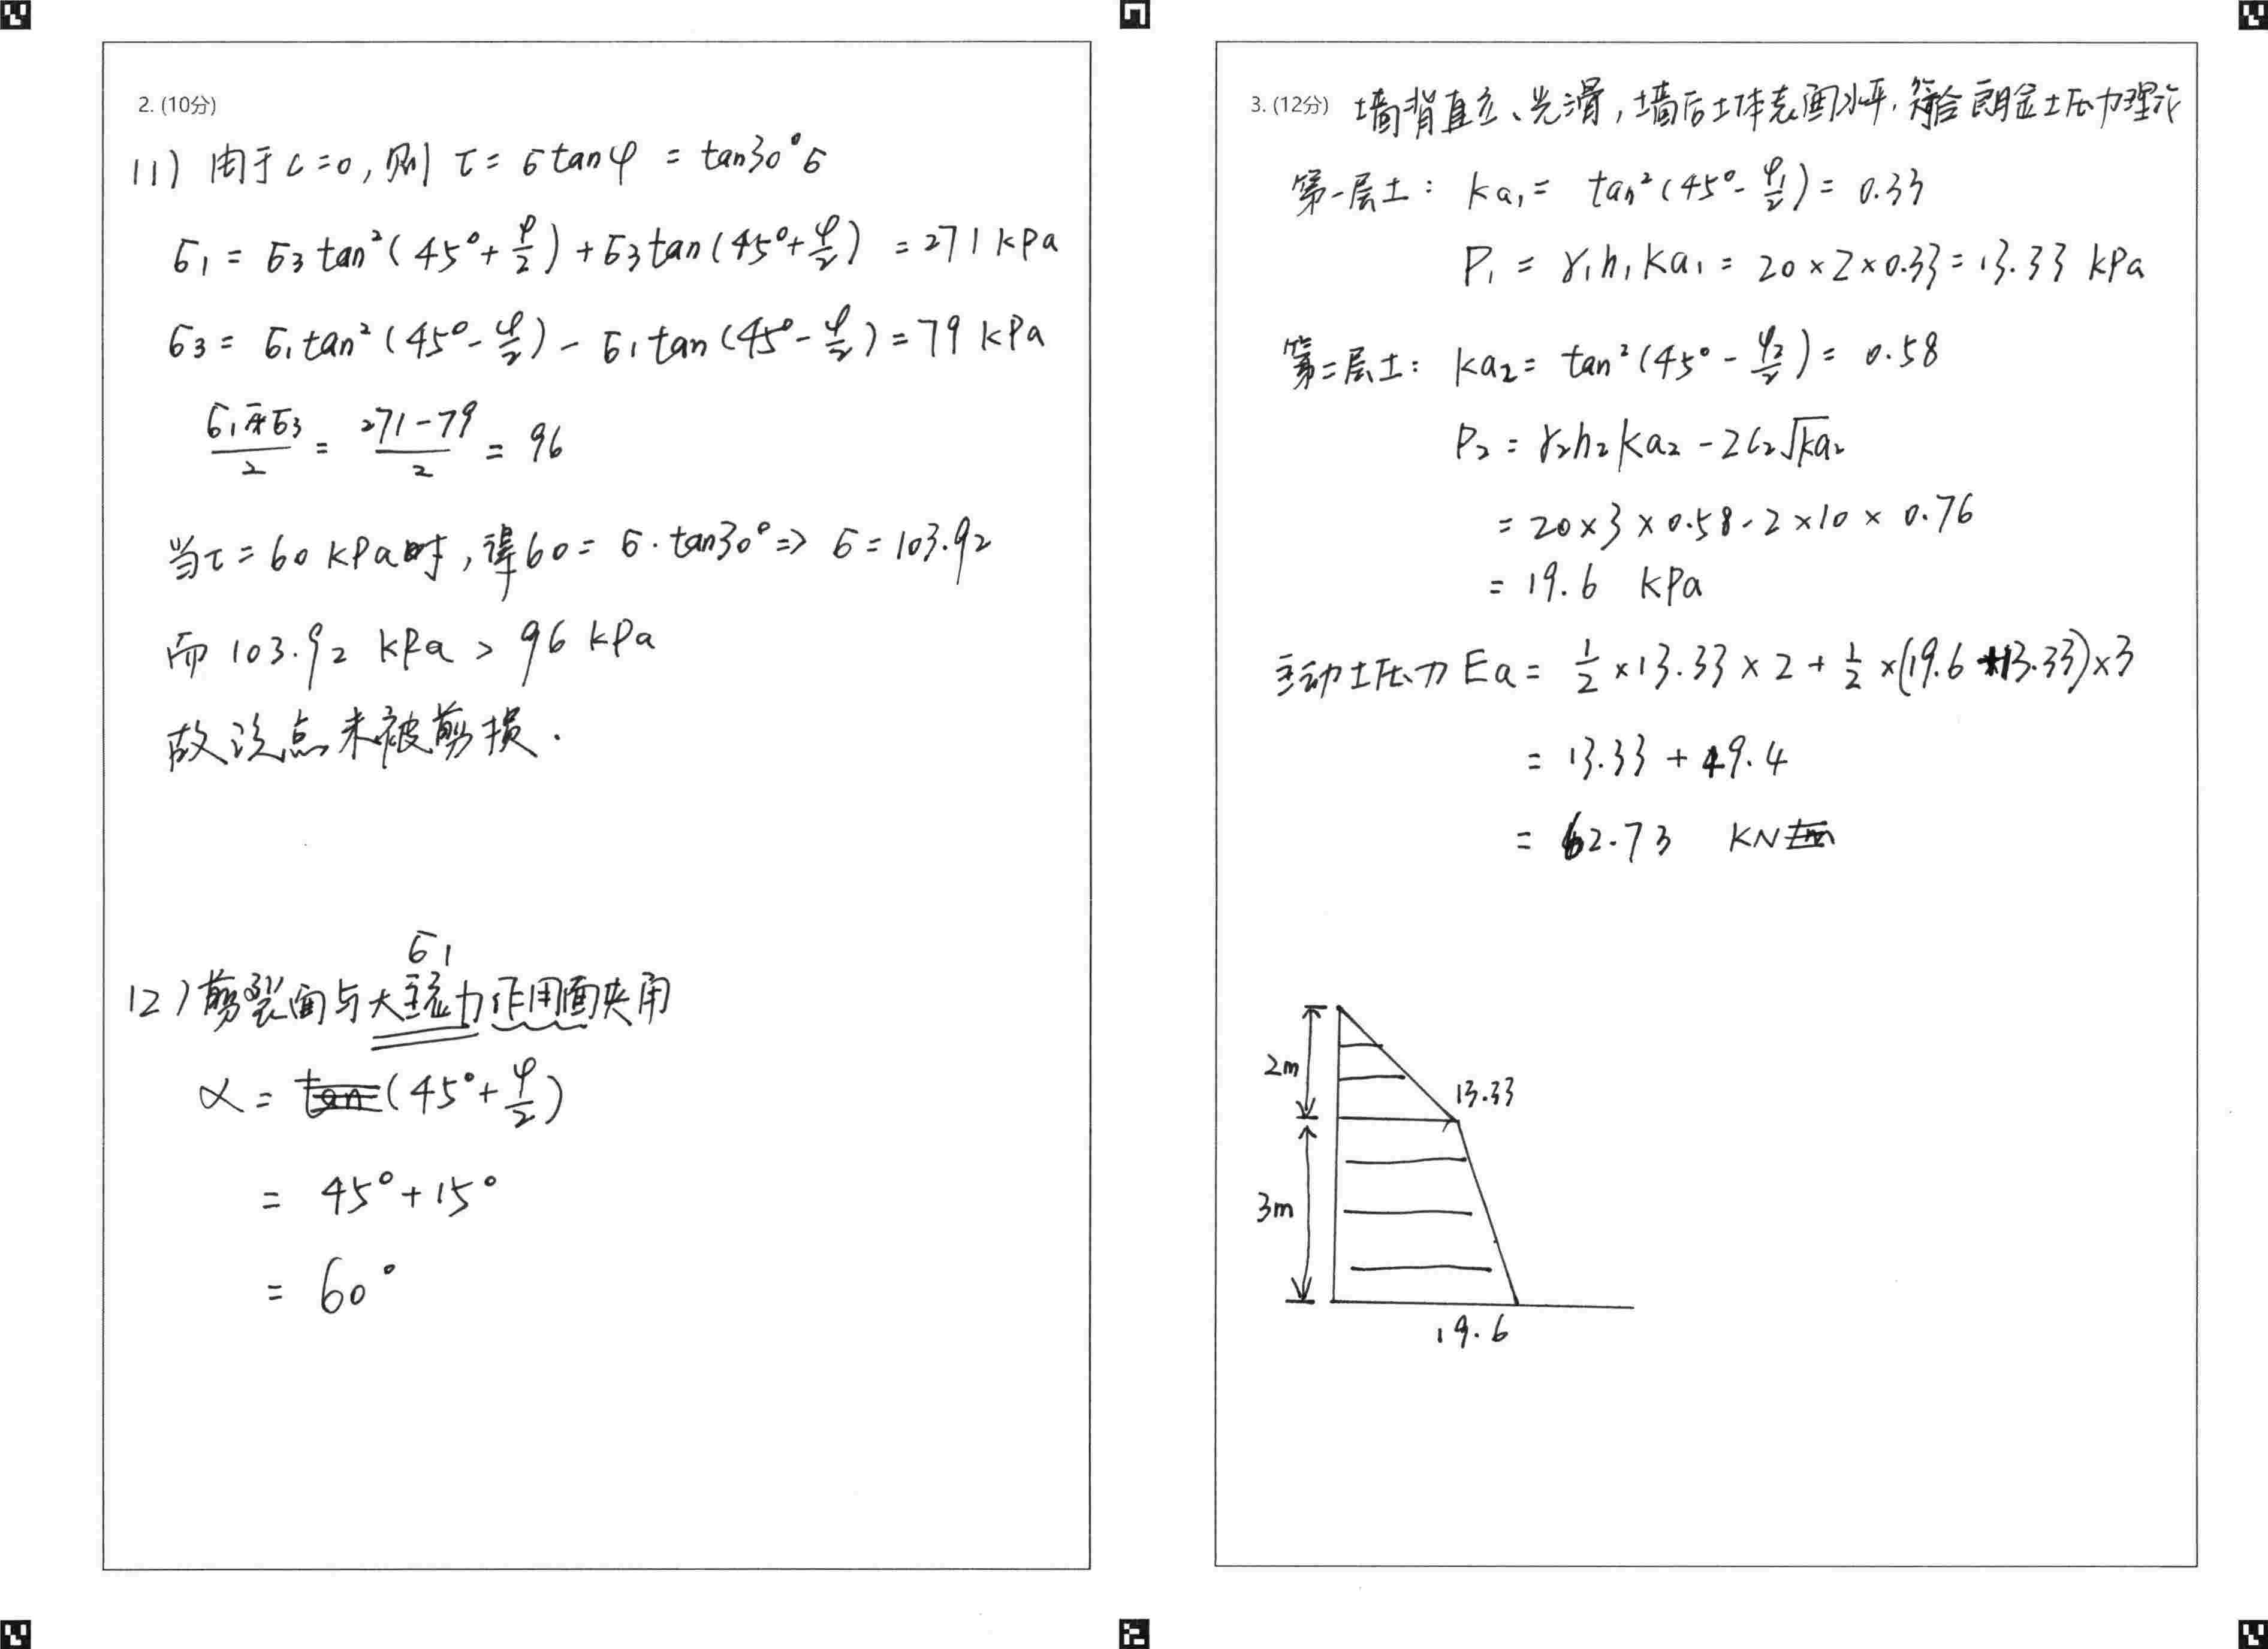 2. (10分)
(1) 由于c=0, 则 τ = σtanφ = tan30°σ
σ₁ = σ₃tan²(45°+φ/2)+σ₃tan(45°+φ/2) = 271 kPa
σ₃ = σ₁tan²(45°-φ/2) - σ₁tan(45°-φ/2) = 79 kPa
= (271-79)/2 = 96
当τ=60 kPa时, 得60 = σ·tan30° => σ = 103.92
而 103.92 kPa > 96 kPa
故该点未被剪损.
σ₁
(2) 剪裂面与大主应力作用面夹角
α = (45°+φ/2)
= 45°+15°
= 60°
3. (12分) 墙背直立、光滑, 墙后土体表面水平, 符合朗金土压力理论
第一层土: ka₁ = tan²(45°-φ₁/2) = 0.33
P₁ = γ₁h₁ka₁ = 20×2×0.33 = 13.33 kPa
第二层土: ka₂ = tan²(45°-φ₂/2) = 0.58
P₂ = γ₂h₂ka₂-2c₂√ka₂
= 20×3×0.58-2×10×0.76
= 19.6 kPa
主动土压力 Ea = 1/2×13.33×2+1/2×(19.6+13.33)×3
= 13.33+49.4
= 62.73 KN
2m
13.33
3m
19.6